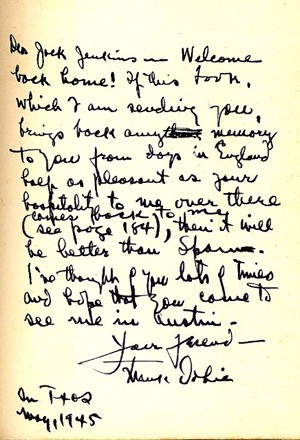 Dear Jack Jenkins — Welcome
back home! If this book,
which I am sending you,
brings back any memory
to you from days in England
half as pleasant as your
hospitality to me over there
comes back to me
(see page 184), then it will
be better than Spam.
I've thought of you lots of times
and hope that you come to
see me in Austin.
Your friend —
Frank Dobie
In Texas
May, 1945